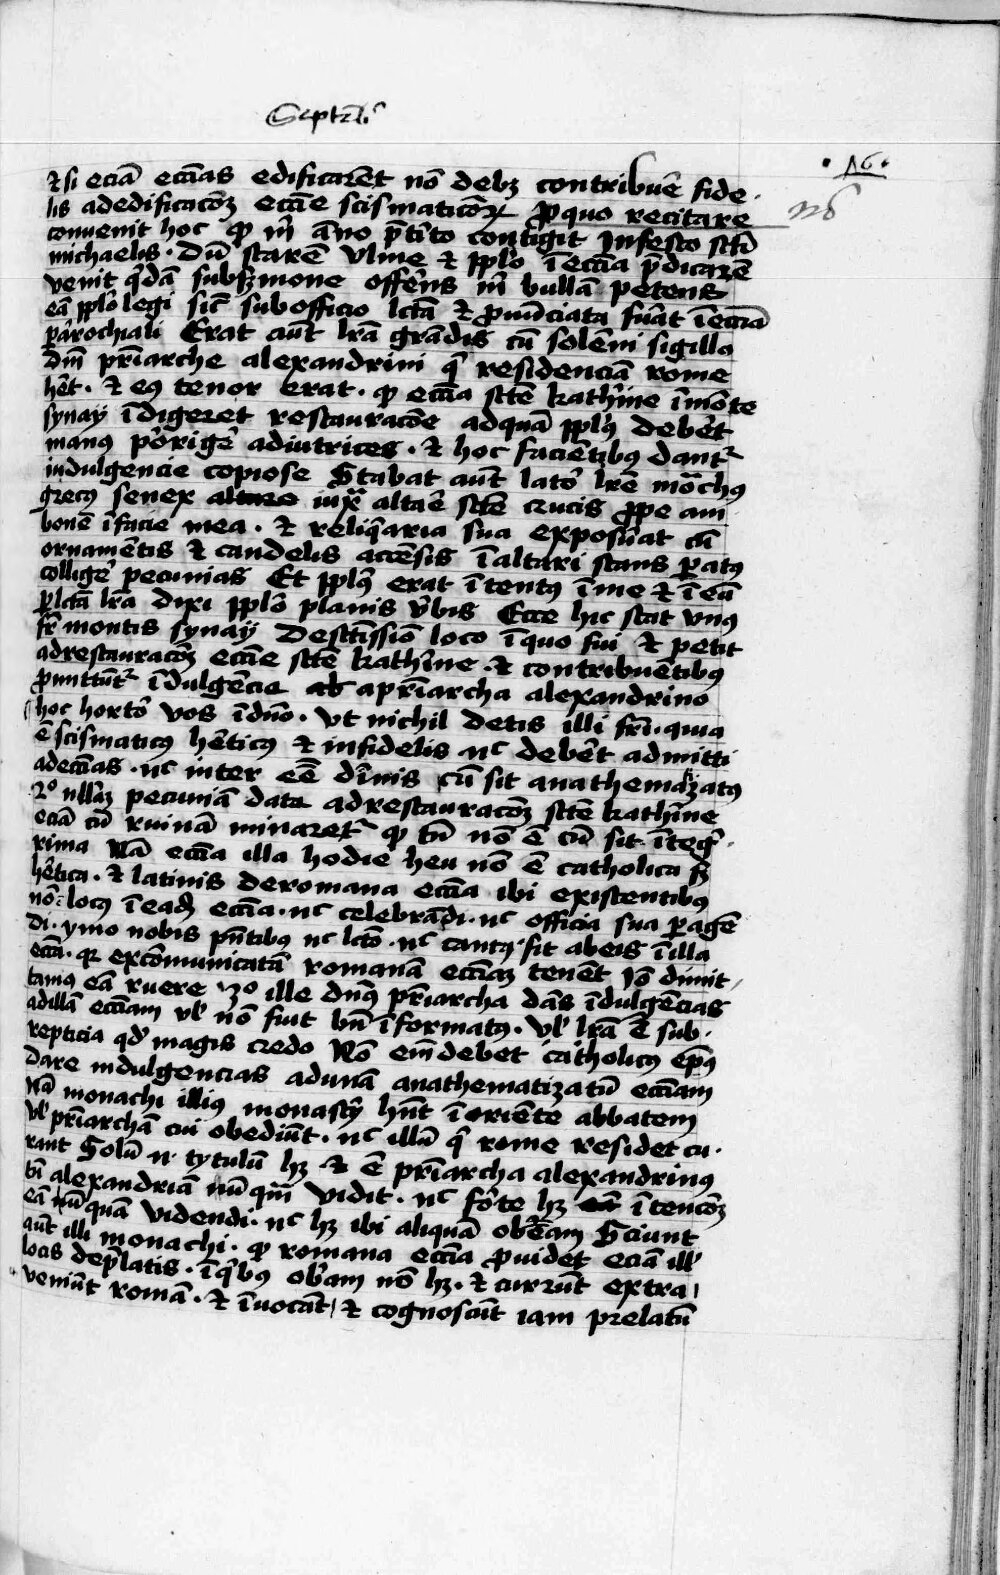 Septēb᷒
· 16 ·
nō
et si eciā eccīas edificarēt nō debꝫ contribuē fide-
lis ad edificacōꝫ eccīe scismaticōꝝ ꝓ quo recitare
conuenit hoc qꝫ m̄ āno p̄tito contigit In festo scti
michaelis · Dū starē Vlme et ppl̄o ī eccīa p̄dicarē
venit q̄dā sub sermone offerēs m̄ bullā petens
eā ppl̄o legi sic sub officio lcta et ꝓnūciata fuāt ī eccīa
parochiali Erat aūt lrā grādis cū solēni sigillo
dm̄ pr̄iarche alexandrini q̄ residenciā rome
hēt · et eꝯ tenor erat · qꝫ eccīa scte kathīne ī mōte
synay īdigeret restauracōe ad quā ppl̄s debēt
manꝯ porigē adiutrices · et hoc faciētibꝯ dant᷒
indulgencie copiose Stabat aūt lator lrē mōchꝯ
grecꝯ senex iux altare scte crucis ꝓpe am
bonē ī facie mea · et reliq̄aria sua exposuāt cū
ornamētis et candelis accēsis ī altari stans paratꝯ
colligē pecunias Et ppl̄s erat ītentꝯ ī me et ī eū
plcta lrā dixi ppl̄o planis v̄bis Ecce hic stat vnꝯ
fr̄ montis synay De sctissiō loco ī quo fui et petit
ad restauracōꝫ eccīe scte kathīne · et contribuētibꝯ
ꝓmittūt᷒ īdulgēcie ab a pr̄iarcha alexandrino
hoc hortor vos ī dn̄o · vt nichil detis illi fr̄i · quia
ē scismaticꝯ hēticꝯ et infidelis nc debēt admitti
ad eccīas · nc inter eē diuīis cū sit anathematizatꝯ
2o nullā pecuniā data ad restauracōꝫ scte kathīne
eciā cū ruinā minaret᷒ qꝫ tn̄ nō ē cū sit īteg-
rima Nā eccīa illa hodie heu nō ē catholica sꝫ
hētica · et latinis de romana eccīa ibi existentibꝯ
nō ē locꝯ ī eadꝫ eccīa · nc celebrādi · nc officia sua pagē
di · ymo nobis pn̄tibꝯ nc lcto · nc cantꝯ fit ab eis ī illa
eccīa · qr excōmunicatā romanā eccīaꝫ tenēt Iō dimit-
tamꝯ eā ruere 3o ille dn̄s pr̄iarcha dās īdulgēcias
ad illā eccīam vl̄ nō fuit bn̄ īformatꝯ · vl̄ lrā ē sub-
repticia qd̄ magis credo Nō eīm debet catholicꝯ ep̄s
dare indulgencias ad vnā anathematizatā eccīam
Nā monachi illiꝯ monastery hn̄t ī oriēte abbatem
vl̄ pr̄iarchā cui obediūt · nc illū q̄ rome residet cu-
rant Solū n̄ tytulū hꝫ et ē pr̄iarcha alexandrinꝯ
tn̄ alexandriā nūqꝫ vidit · nc forte hꝫ ītencōꝫ
eā nūquā videndi · nc hꝫ ibi aliquā obediam Sciunt
aūt illi monachi · qꝫ romana eccīa ꝓuidet eciā ill̄
locis de prelatis · ī qbꝯ obiam nō hꝫ · et currūt extra
veniūt romā · et īuocāt et cognoscūt iam prelatū